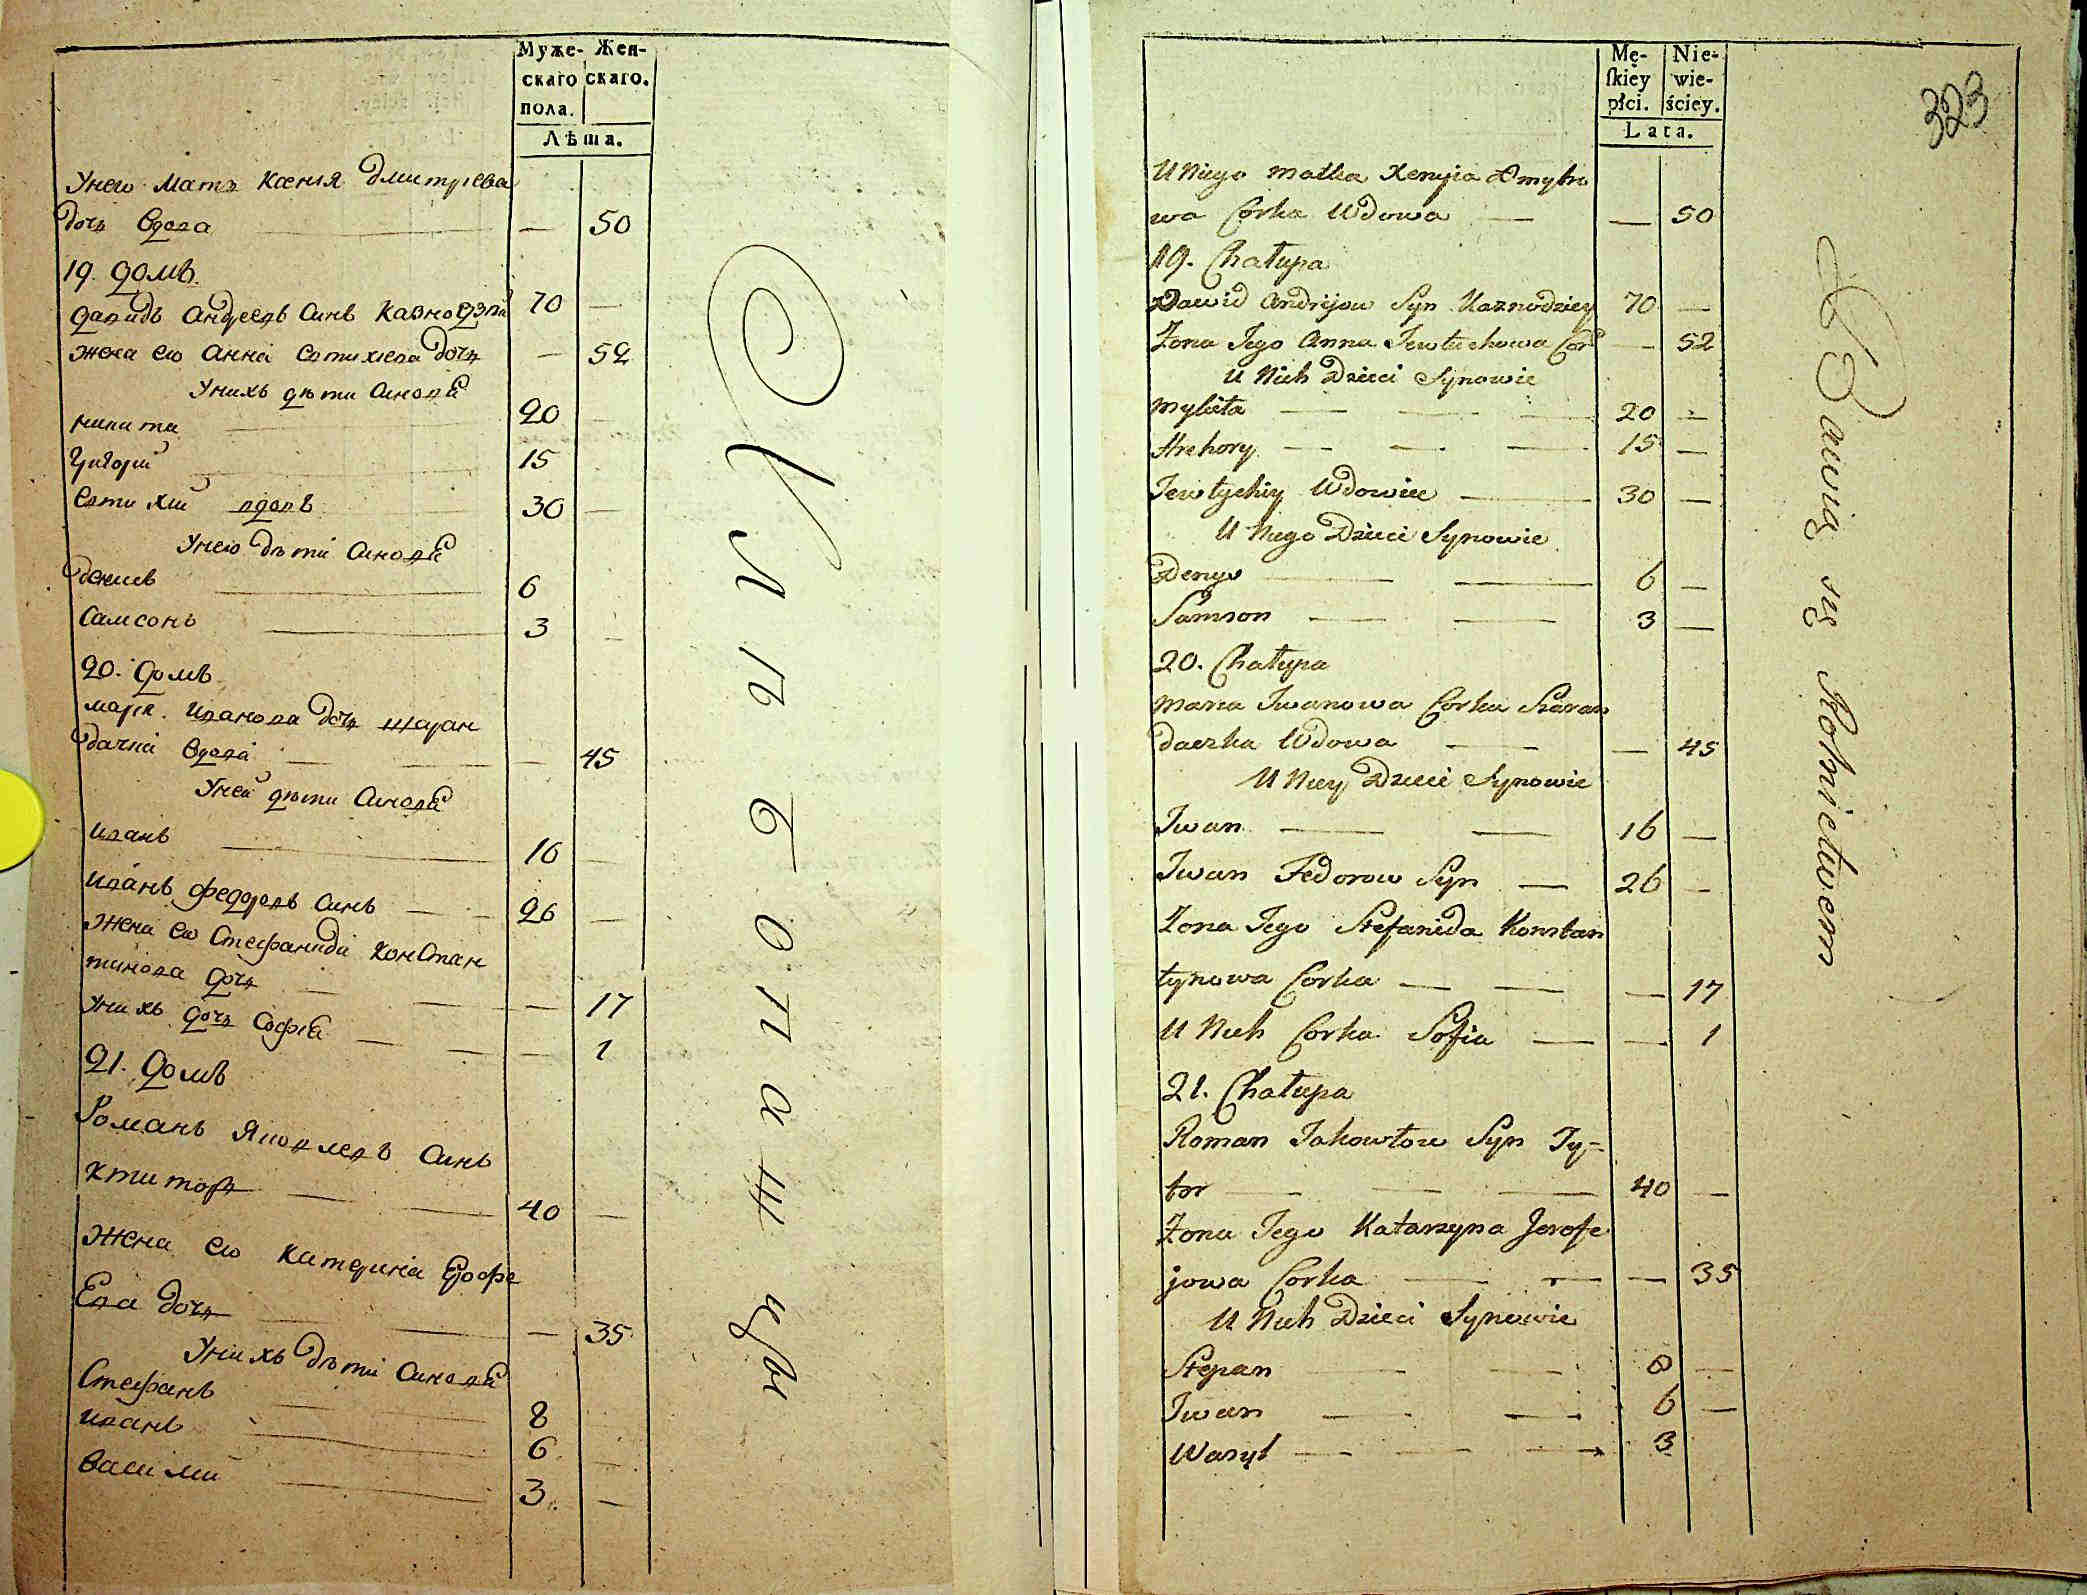 Муже-
скаго
пола.
Жен-
скаго.
Лѣта.
Унего мать Ксенія Дмитріева
дочь вдова — — 50
19. домъ
давидъ андреевъ синъ казнодзѣй 70 —
жена его анна евтихіева дочь — 52
Унихъ дѣти синовѣ
никита — 20 —
григорій — 15
евтихій вдовъ 30 —
Унего дѣти синовѣ
денисъ — 6
Самсонъ — 3 —
20. домъ
марія иванова дочь шаран
дачка вдова — — 45
Уней дѣти синовѣ
иванъ — 16 —
иванъ федоровъ синъ — 26 —
жена его Стефанида констан
тинова дочь — — 17
унихъ дочь Софія — — 1
21. домъ
Романъ яковлевъ синъ
ктиторъ — 40 —
жена его катерина Ерофе
Ева дочь — — 35
Унихъ дѣти синовѣ
Стефанъ — 8
иванъ — 6 —
василій — 3 —
хлѣбопашцы
Mę-
skiey
płci.
Nie-
wie-
ściey.
Lata.
323
U Niego matka Xenyia Dmytro
wa Corka Wdowa — — 50
19. Chałupa
Dawid Andrijow Syn Kaznodziey 70 —
Żona Jego Anna Jewtuchowa Cor — 52
U Nich Dzieci Synowie
Mykita — 20 —
Hrehory — 15 —
Jewtychiy Wdowiec — 30 —
U Niego Dzieci Synowie
Denys — 6 —
Samson — 3 —
20. Chałupa
Maria Iwanowa Corka Szaran
daczka Wdowa — — 45
U Niey Dzieci Synowie
Iwan — 16 —
Iwan Fedorow Syn — 26 —
Żona Jego Stefanida Konstan
tynowa Corka — — 17
U Nich Corka Sofia — — 1
21. Chałupa
Roman Jakowłow Syn Ty=
tor — 40 —
Żona Jego Katarzyna Jerofe
jowa Corka — — 35
U Nich Dzieci Synowie
Stepan — 8 —
Iwan — 6 —
Wasyl — 3
Bawią się Rolnictwem